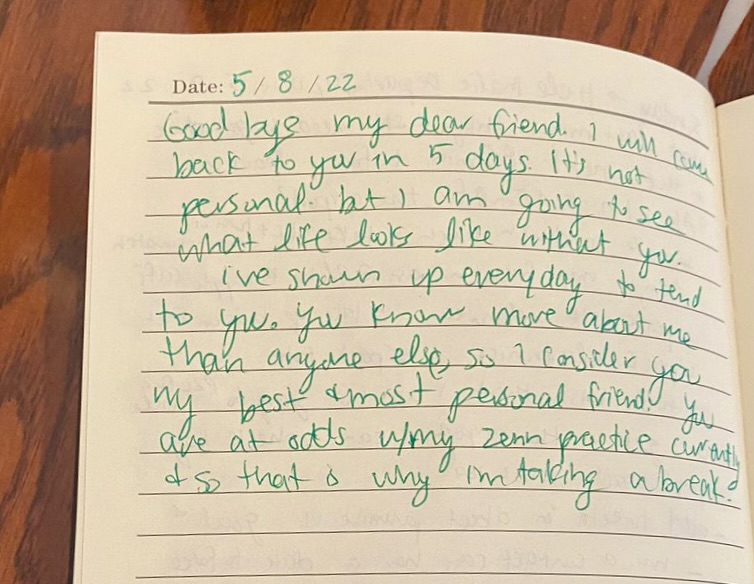 Date: 5/8/22
Good bye my dear friend. I will come
back to you in 5 days. It's not
personal. but I am going to see
what life looks like without you.
ive shown up everyday to tend
to you. You know more about me
than anyone else, so I consider you
my best & most personal friend. You
are at odds w/my zenn practice currently
& so that is why im taking a break.